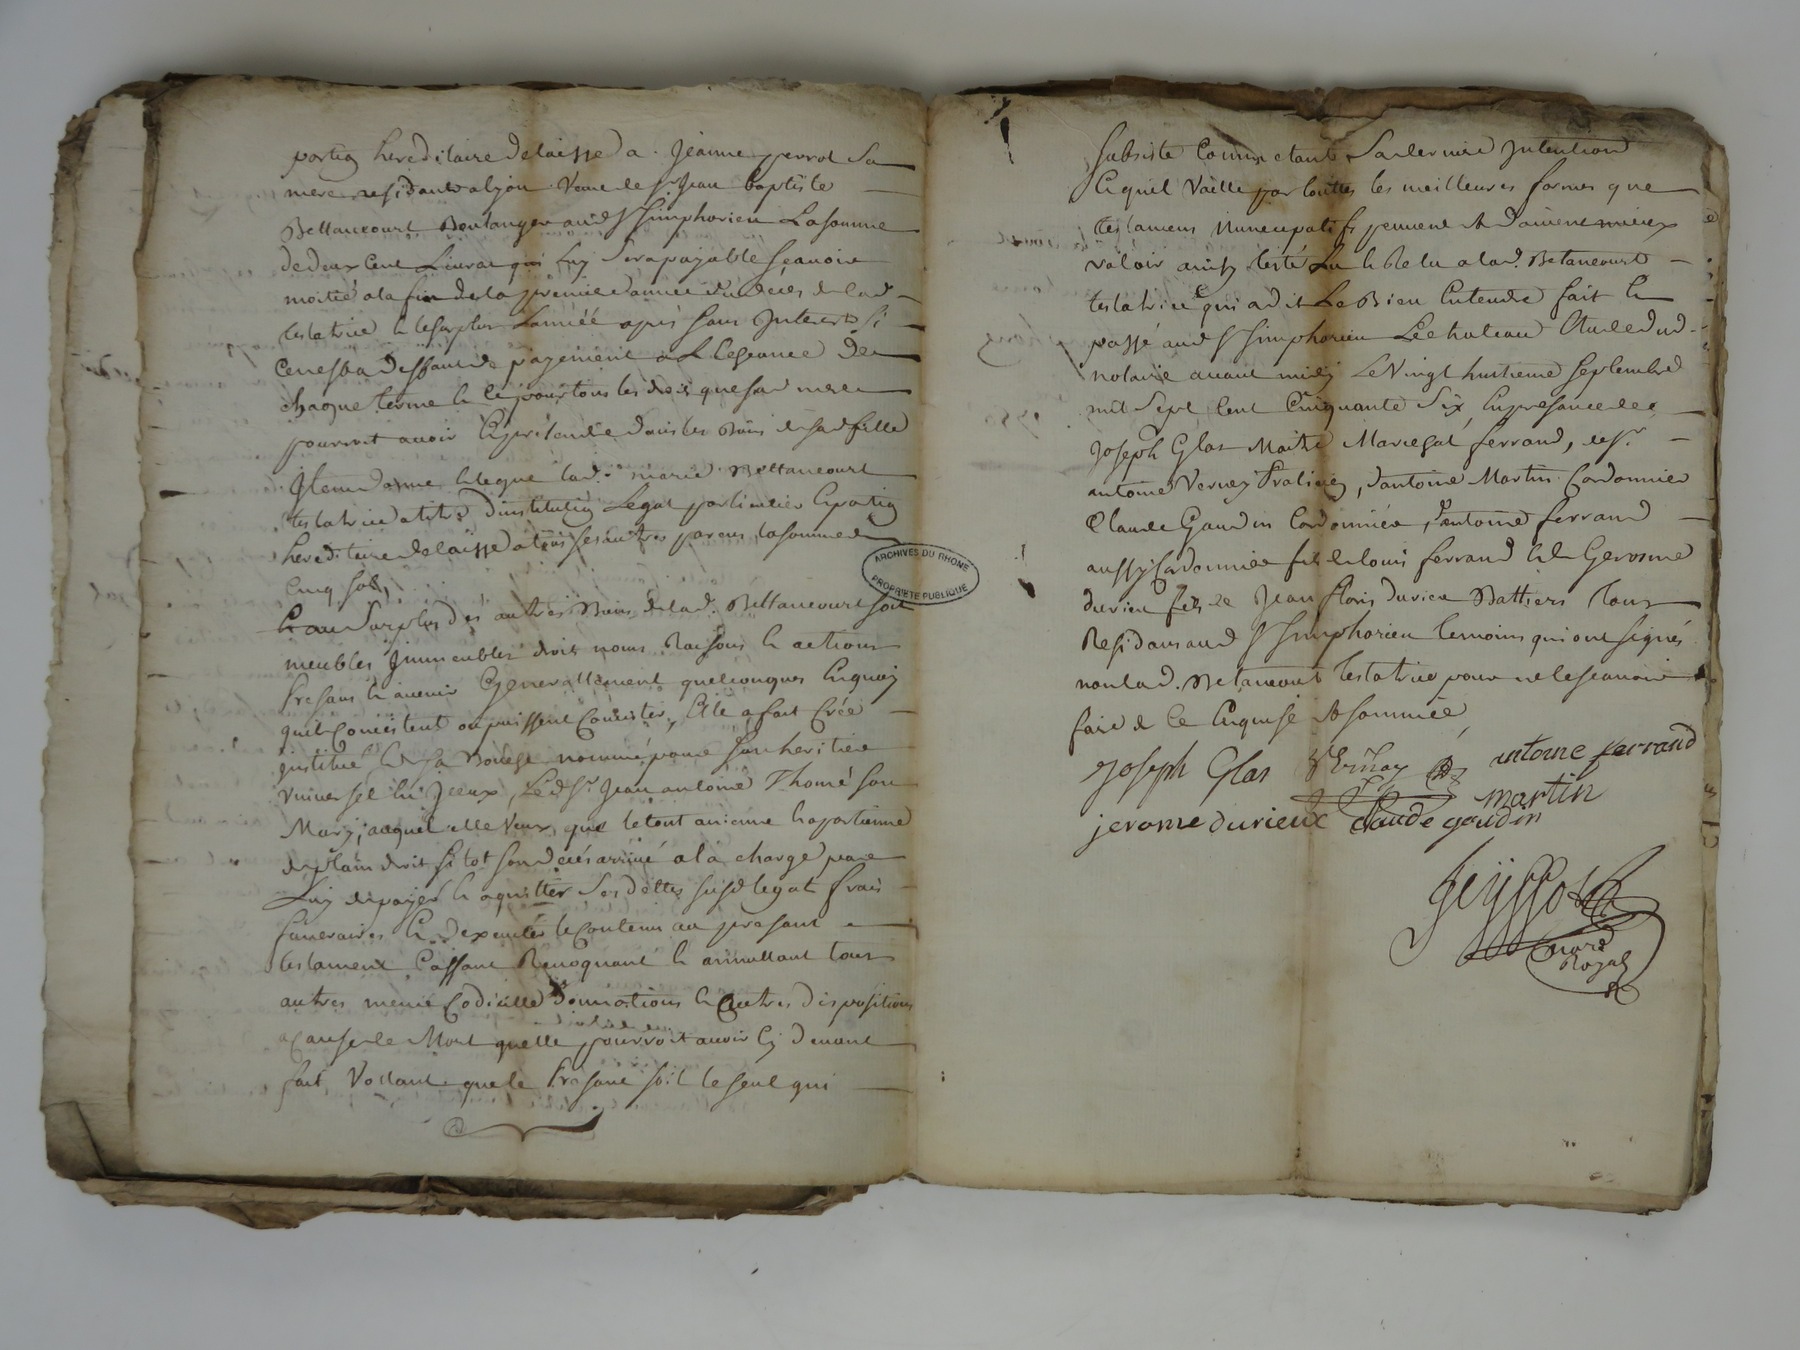 portion hereditaire delaisse a Jeanne perrot sa
mere residante a lyon veuve de Sr Jean baptiste
Bettancourt Boulanger aud St Simphorien La somme
de deux Cent Livres qui luy sera payable scavoir
moitié a la fin de la premiere année du deces de lad
testatrice & le surplus L'année apres sans Interets si
ce nest a deffaut de payement a L'Echeance de
chaque terme & ce pour tous les droits que sad mere
pourroit avoir & pretendre dans les Biens de sad fille
Item donne & legue lad. marie Bettancourt
testatrice a titre d'institution Legat particulier & portion
hereditaire delaisse a tous ses autres parens la somme de
Cinq sols,
Et au surplus des autres Biens de lad. Bettancourt soit
meubles Immeubles droits noms Raisons & actions
Presans & avenir Generallement quelconques En quoy
quils Consistent ou puissent Consister, Elle a fait Créé
institué & de sa Bouche nommé pour son heritier
universel Sr Jean antoine Thomé son
Mary, auquel elle veux que le tout avienne & apartienne
de plain droit sitot son deces arrivé a la charge par
Luy de payer & aquitter ses dettes susd legat frais
funeraires & d'executer le Contenu au presant
testament Cassant Revoquant & annullant tous
autres meme Codicille Donnations & autres dispositions
a Cause de Mort quelle pourroit avoir Cy devant
fait, Voulant que le Presant soit le seul qui
subsiste Comme etant sa derniere Intention
& quil vaille par toutes les meilleures formes que
testamens nuncupatifs peuvent & doivent mieux
valoir ainsy testé Lu & Relu a lad. Betancourt
testatrice qui a dit Le Bien Entendre fait &
passé aud St Simphorien Le chateau Etude dud
notaire avant midy Le Vingt huitieme Septembre
mil Sept Cent Cinquante Six En presance de
Joseph Glas Maitre Marechal ferrand, de Sr
antoine Verney Praticien, d'antoine Martin Cordonnier
Claude Gaudin Cordonnier, d'antoine ferrand
aussy Cordonnier fils de louis ferrand & de Gerosme
durieu fils de Jean floris durieu Battiers Tous
Residans aud St Simphorien temoins qui ont signés
non lad. Betancourt testatrice pour ne le scavoir
faire de ce Enquise & sommée
Joseph Glas Verney antoine ferrand
martin
jerome durieux Claude gaudin
Geyssot
Nore
Royal
ARCHIVES DU RHONE
PROPRIETE PUBLIQUE